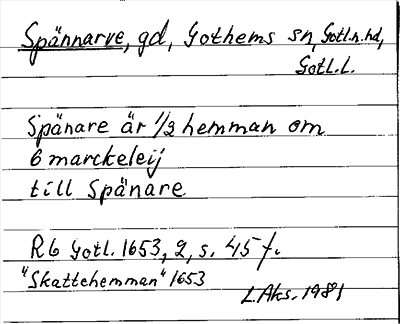 Spännarve, gd, Gothems sn, Gotl.n.hd,
Gotl.L.
Spänare är 1/2 hemman om
6 marckeleij
till Spänare
Rb Gotl. 1653, 2, s. 45 f.
"Skattehemman" 1653
L.Aks. 1981